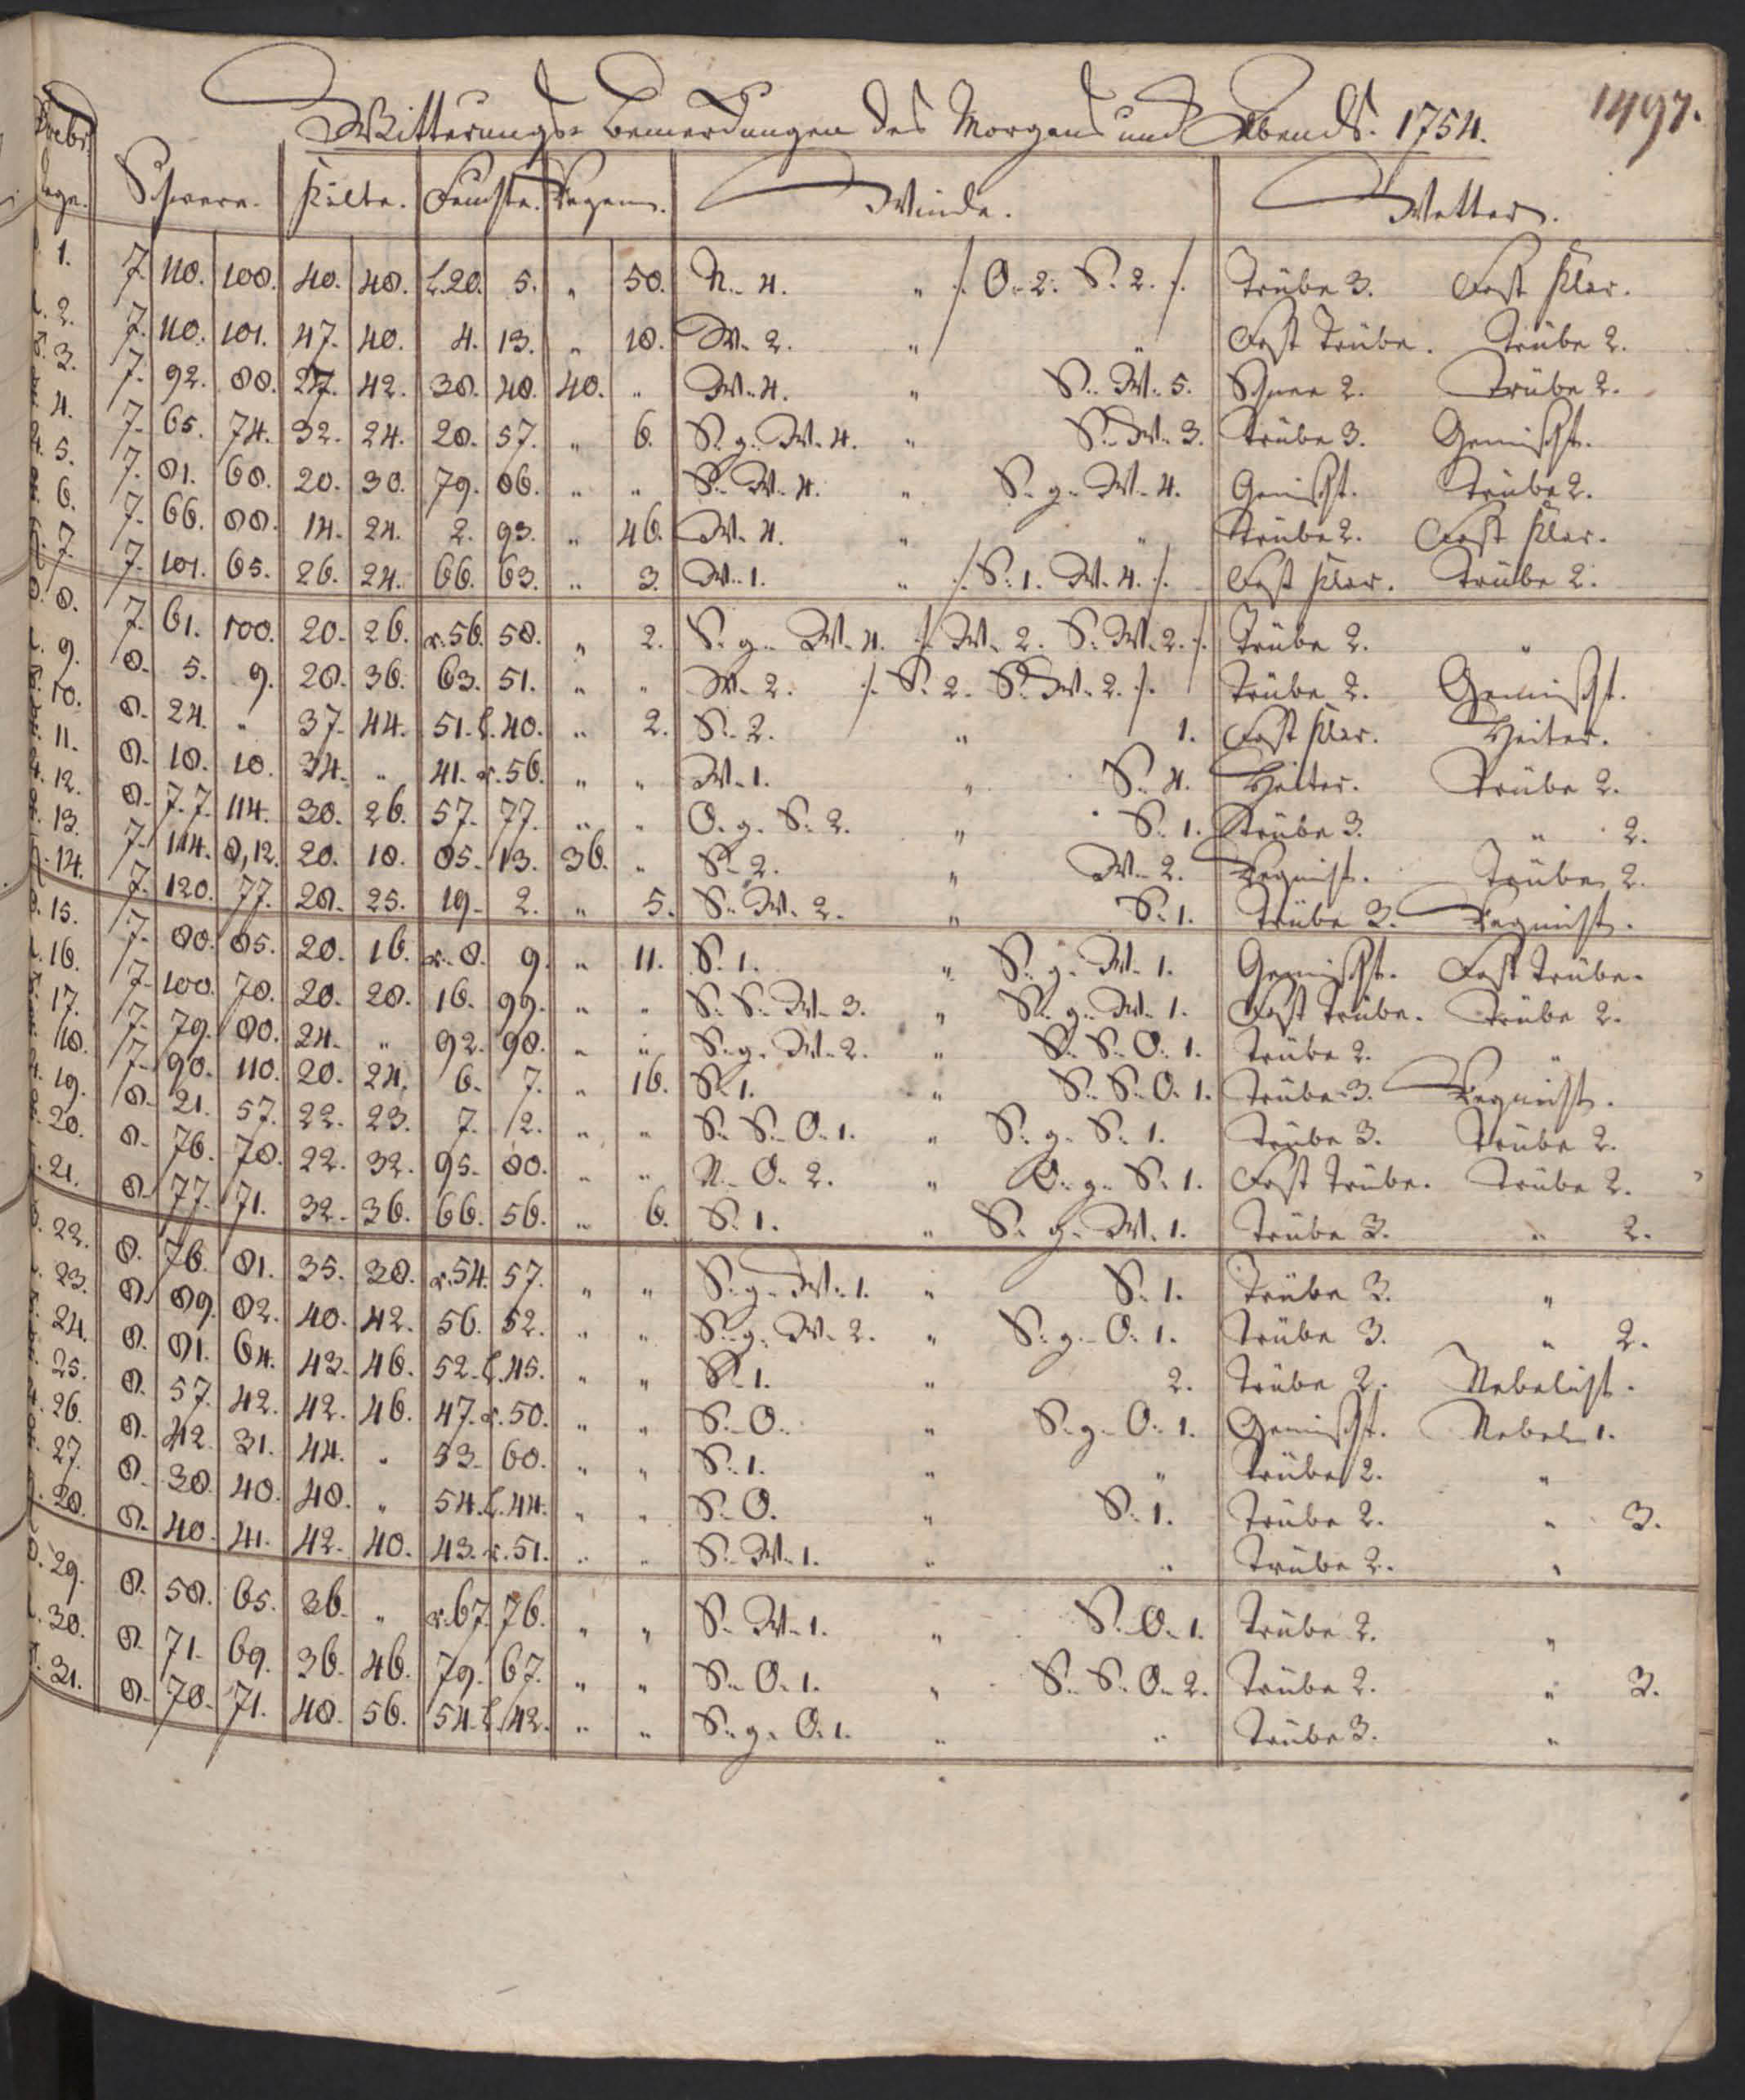 1497.
Witterungs- Bemerckungen des Morgens und Abends. 1754.
Xbr. Tage. Schwere. Kälte. Feuchte. Regen. Winde. Wetter.
1. 7. 110. 108. 40. 48. l.20. 5. „ 50. N. 4. „ /. O. 2. S. 2. /. Trübe 3. Fast Klar.
2. 7. 110. 101. 47. 40. 4. 13. „ 18. W. 2. „ „ Fast Trübe. Trübe 2.
3. 7. 92. 88. 27. 42. 38. 48. 40. „ W. 4. „ S. W. 5. Schnee 2. Trübe 2.
4. 7. 65. 74. 32. 24. 28. 57. „ 6. S. g. W. 4. „ S. W. 3. Trübe 3. Gemischt.
5. 7. 81. 68. 20. 30. 79. 86. „ „ S. W. 4. „ S. g. W. 4. Gemischt. Trübe 2.
6. 7. 66. 88. 14. 24. 2. 93. „ 46. W. 4. „ „ Trübe 2. Fast Klar.
7. 7. 101. 65. 26. 24. 66. 63. „ 3. W. 1. „ /. S. 1. W. 4. /. Fast Klar. Trübe 2.
8. 7. 61. 100. 20. 26. r.56. 58. „ 2. S. g. W. 4. /. W. 2. S. W. 2. /. Trübe 2. „
9. 8. 5. 9. 28. 36. 63. 51. „ „ W. 2. /. S. 2. S. W. 2. /. Trübe 2. Gemischt.
10. 8. 24. „ 37. 44. 51. l.40. „ 2. S. 2. „ 1. Fast Klar. Heiter.
11. 8. 18. 10. 34. „ 41. r.56. „ „ W. 1. „ S. 4. Heiter. Trübe 2.
12. 8. 7.7. 114. 30. 26. 57. 77. „ „ O. g. S. 2. „ S. 1. Trübe 3. „ 2.
13. 7. 114. 8,12. 20. 18. 85. 13. 36. „ S. 2. „ W. 2. Regnicht. Trübe 2.
14. 7. 120. 77. 28. 25. 19. 2. „ 5. S. W. 2. „ S. 1. Trübe 3. Regnicht.
15. 7. 80. 85. 20. 16. r.8. 9. „ 11. S. 1. „ S. g. W. 1. Gemischt. Fast Trübe.
16. 7. 100. 78. 20. 28. 16. 99. „ „ S. S. W. 3. „ S. g. W. 1. Fast Trübe. Trübe 2.
17. 7. 79. 80. 24. „ 92. 98. „ „ S. g. W. 2. „ S. S. O. 1. Trübe 2. „
18. 7. 90. 110. 20. 24. 6. 7. „ 16. S. 1. „ S. S. O. 1. Trübe 3. Regnicht.
19. 8. 21. 57. 22. 23. 7. 12. „ „ S. S. O. 1. „ S. g. S. 1. Trübe 3. Trübe 2.
20. 8. 76. 78. 22. 32. 95. 80. „ „ N. O. 2. „ O. g. S. 1. Fast Trübe. Trübe 2.
21. 8. 77. 71. 32. 36. 66. 56. „ 6. S. 1. „ S. g. W. 1. Trübe 3. „ 2.
22. 8. 76. 81. 35. 38. r.54. 57. „ „ S. g. W. 1. „ S. 1. Trübe 3. „
23. 8. 89. 82. 40. 42. 56. 52. „ „ S. g. W. 2. „ S. g. O. 1. Trübe 3. „ 2.
24. 8. 81. 64. 43. 46. 52. l.45. „ „ S. 1. „ 2. Trübe 2. Nebelicht.
25. 8. 57. 42. 42. 46. 47. r.50. „ „ S. O. „ S. g. O. 1. Gemischt. Nebel 1.
26. 8. 42. 31. 44. „ 53. 60. „ „ S. 1. „ „ Trübe 2. „
27. 8. 38. 40. 48. „ 54. l.44. „ „ S. O. „ S. 1. Trübe 2. „ 3.
28. 8. 40. 41. 42. 40. 43. r.51. „ „ S. W. 1. „ „ Trübe 2. „
29. 8. 58. 65. 36. „ r.67. 76. „ „ S. W. 1. „ S. O. 1. Trübe 2. „
30. 8. 71. 69. 36. 46. 79. 67. „ „ S. O. 1. „ S. S. O. 2. Trübe 2. „ 3.
31. 8. 70. 71. 48. 56. 54. l.42. „ „ S. g. O. 1. „ „ Trübe 3. „